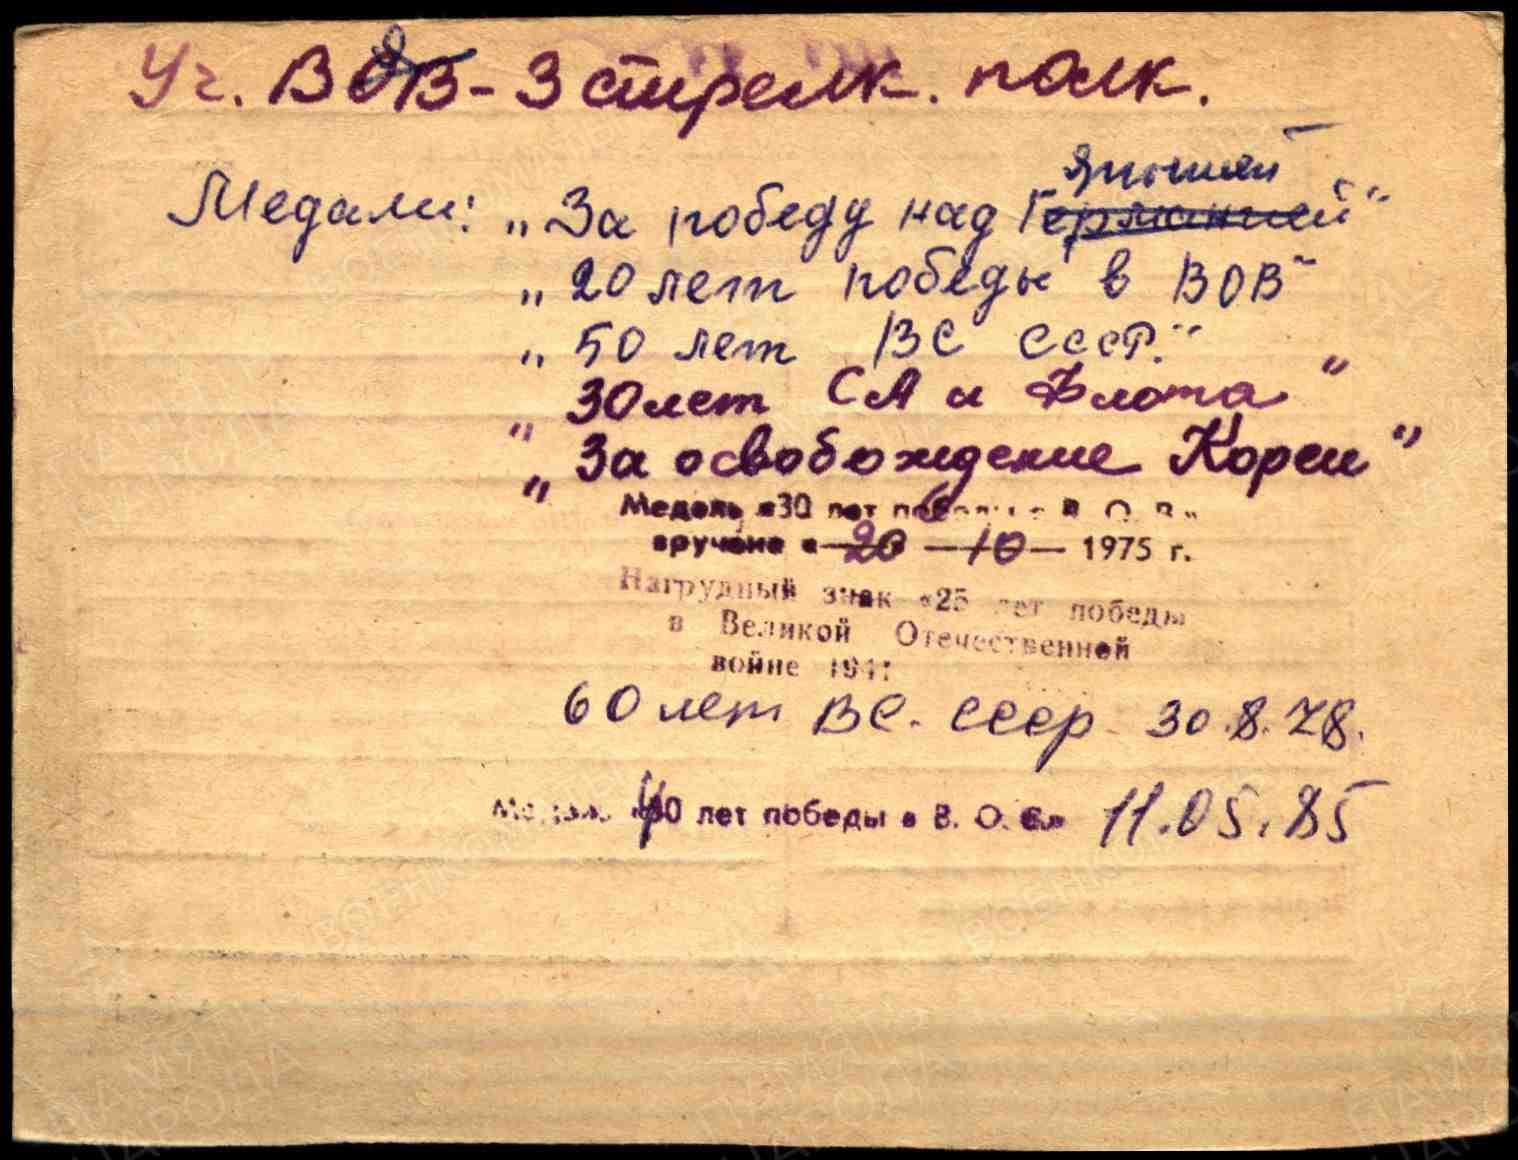 Уч. ВОВ - 3 стрелк. полк.
Японией
Медали: „За победу над Германией"
„20 лет победы в ВОВ"
„50 лет ВС СССР."
„30 лет СА и Флота"
„За освобождение Кореи"
Медаль «30 лет победы в В. О. В.»
вручена « 20 — 10 — 1975 г.
Нагрудный знак «25 лет победы
в Великой Отечественной
войне 1941
60 лет ВС. СССР 30.8.78.
Медаль «40 лет победы в В. О. В.» 11.05.85